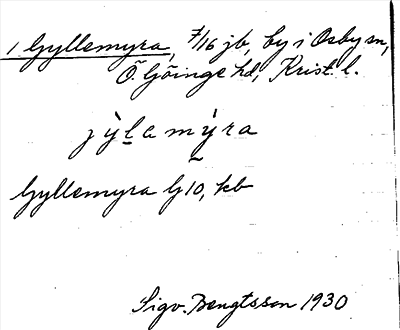 1 Gyllemyra, 7/16 jb, by i Osby sn,
Ö. Göinge hd, Krist. l.
jỳlemỳra
Gyllemyra G 10, kb
Sigv. Bengtsson 1930